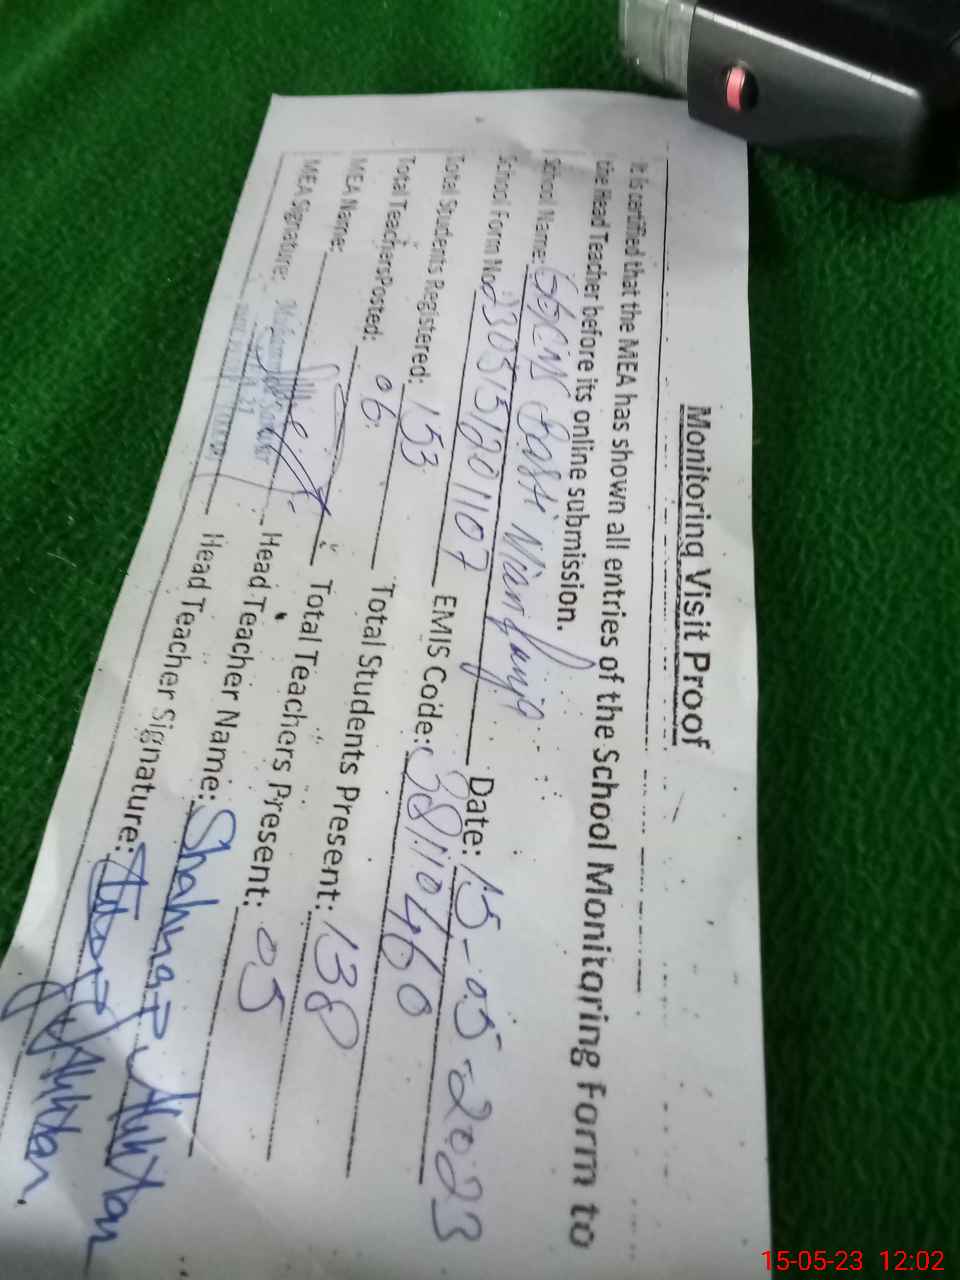 Monitoring Visit Proof
It is certified that the MEA has shown all entries of the School Monitoring Form to
the Head Teacher before its online submission.
School Name: Basti Date: 15-05-2023
School Form No: EMIS Code: 38110460
Total Students Registered: 153 Total Students Present: 138
Total Teachers Posted: 06 Total Teachers Present: 05
MEA Name: Head Teacher Name: Shahnaz Akhtar
MEA Signature: Head Teacher Signature: Akhtar
15-05-23 12:02